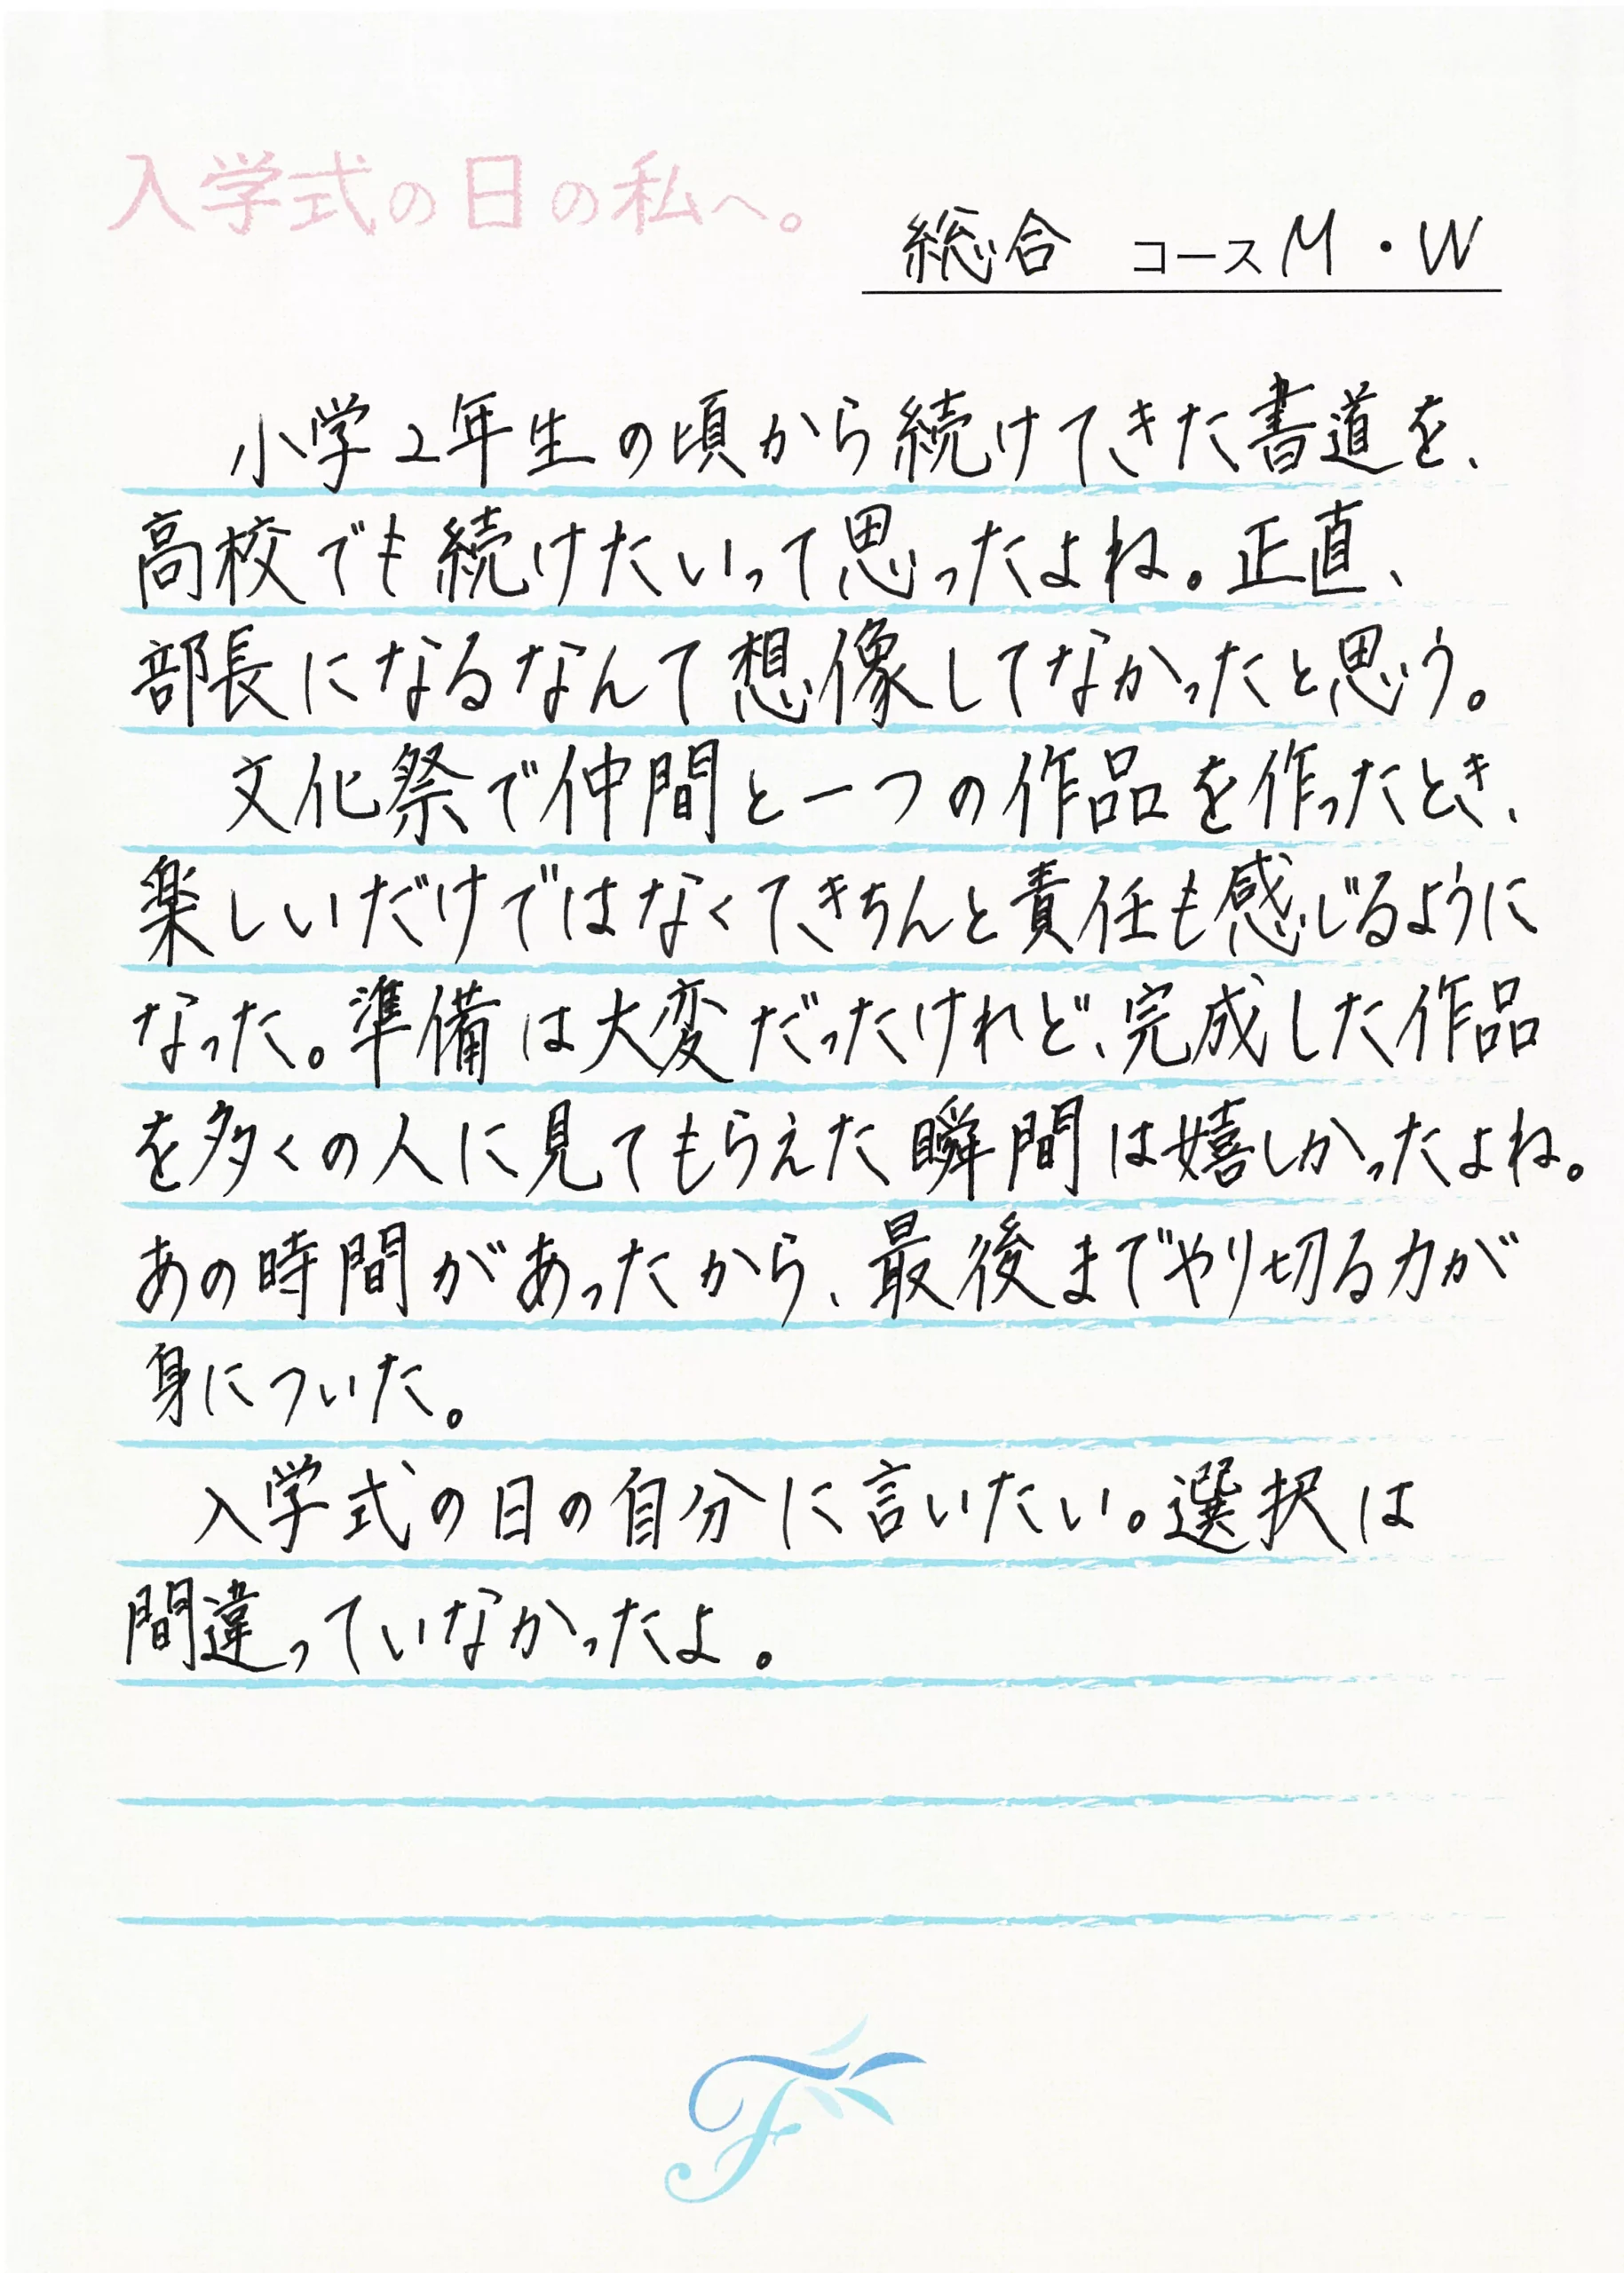 入学式の日の私へ。
総合 コース M・W
小学2年生の頃から続けてきた書道を、
高校でも続けたいって思ったよね。正直、
部長になるなんて想像してなかったと思う。
文化祭で仲間と一つの作品を作ったとき、
楽しいだけではなくて、きちんと責任も感じるように
なった。準備は大変だったけれど、完成した作品
を多くの人に見てもらえた瞬間は嬉しかったよね。
あの時間があったから、最後までやり切る力が
身についた。
入学式の日の自分に言いたい。選択は
間違っていなかったよ。
F